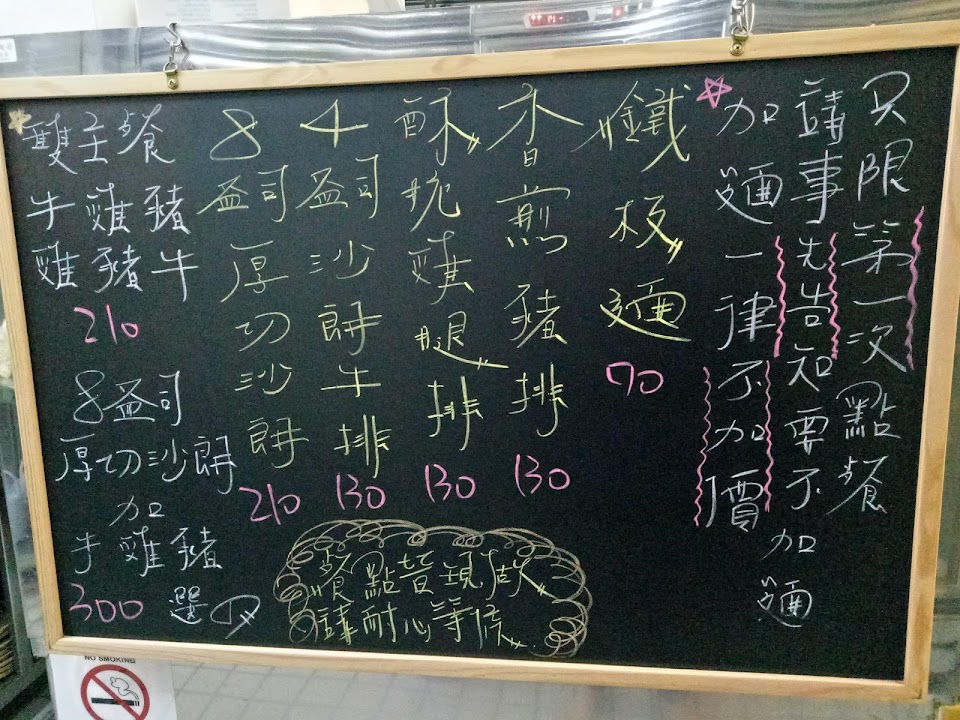 只限第一次點餐
請事先告知要不加麵
加麵一律不加價
鐵板麵 70
香煎豬排 130
酥雞腿排 130
4盎司沙朗牛排 130
8盎司厚切沙朗 210
雙主餐
牛雞豬
雞豬牛
210
8盎司
厚切沙朗
加
牛雞豬
300 選
餐點皆現做
請耐心等候
NO SMOKING